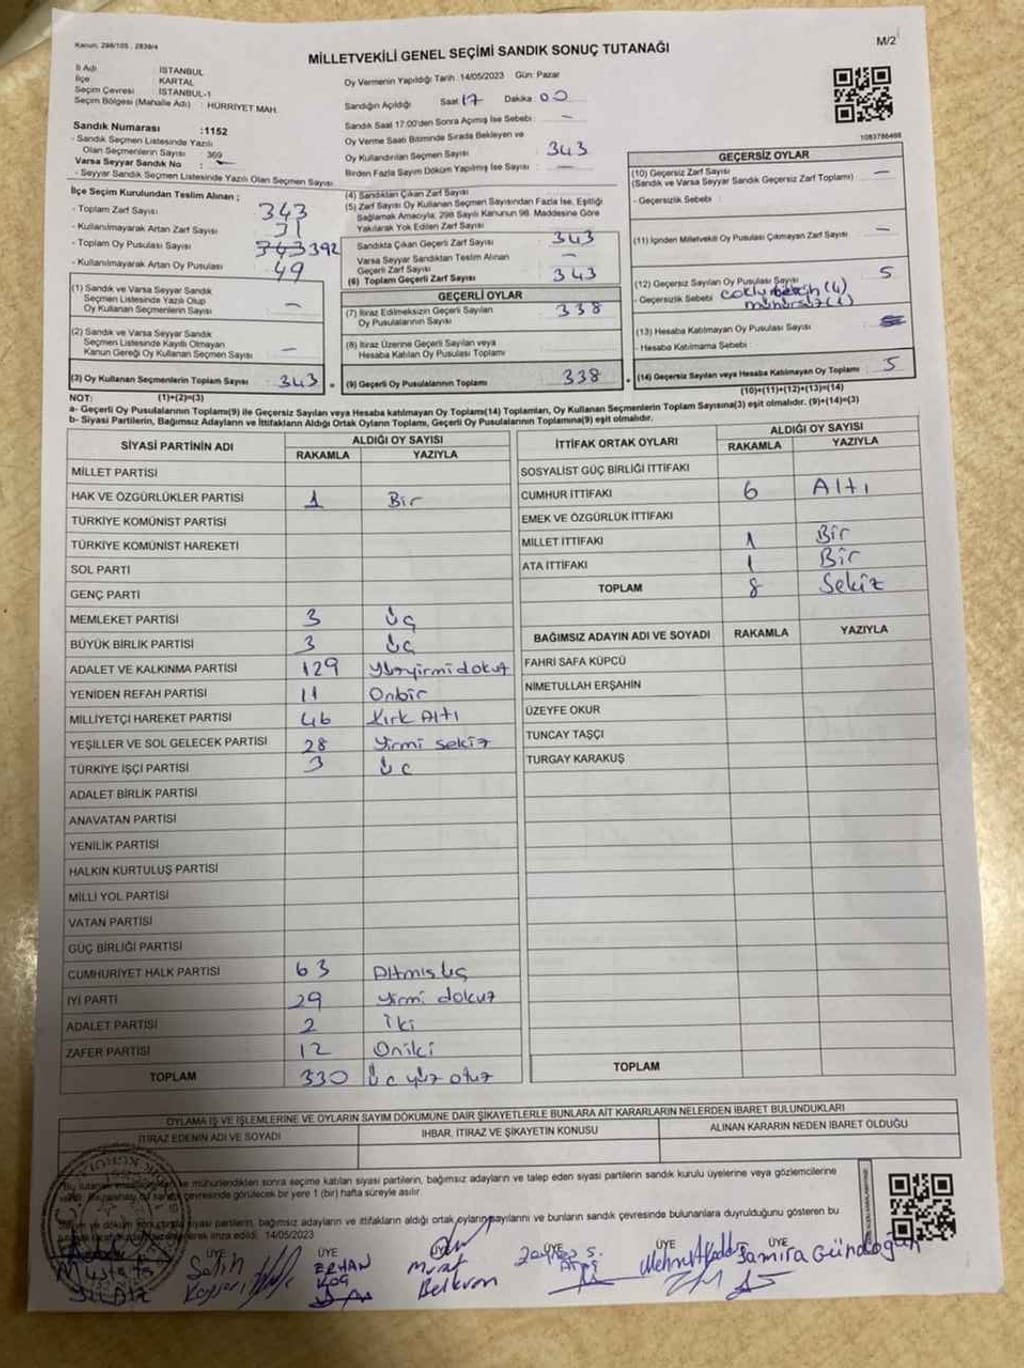 Kanun: 298/105 , 2839/4
MİLLETVEKİLİ GENEL SEÇİMİ SANDIK SONUÇ TUTANAĞI
M/2
İl Adı : İSTANBUL
İlçe : KARTAL
Seçim Çevresi : İSTANBUL-1
Seçim Bölgesi (Mahalle Adı) : HÜRRİYET MAH.
Sandık Numarası :1152
- Sandık Seçmen Listesinde Yazılı
Olan Seçmenlerin Sayısı : 369
Varsa Seyyar Sandık No : -
- Seyyar Sandık Seçmen Listesinde Yazılı Olan Seçmen Sayısı
Oy Vermenin Yapıldığı Tarih :14/05/2023 Gün: Pazar
Sandığın Açıldığı Saat: 17 Dakika: 00
Sandık Saat 17:00'den Sonra Açılmış İse Sebebi : -
Oy Verme Saati Bitiminde Sırada Bekleyen ve
Oy Kullandırılan Seçmen Sayısı : 343
Birden Fazla Sayım Döküm Yapılmış İse Sayısı : -
1083786468
İlçe Seçim Kurulundan Teslim Alınan ;
- Toplam Zarf Sayısı : 343
- Kullanılmayarak Artan Zarf Sayısı : 31
- Toplam Oy Pusulası Sayısı : 343 392
- Kullanılmayarak Artan Oy Pusulası : 49
(1) Sandık ve Varsa Seyyar Sandık
Seçmen Listesinde Yazılı Olup
Oy Kullanan Seçmenlerin Sayısı : -
(2) Sandık ve Varsa Seyyar Sandık
Seçmen Listesinde Kayıtlı Olmayan
Kanun Gereği Oy Kullanan Seçmen Sayısı : -
(3) Oy Kullanan Seçmenlerin Toplam Sayısı : 343
(4) Sandıktan Çıkan Zarf Sayısı
(5) Zarf Sayısı Oy Kullanan Seçmen Sayısından Fazla İse, Eşitliği
Sağlamak Amacıyla, 298 Sayılı Kanunun 98. Maddesine Göre
Yakılarak Yok Edilen Zarf Sayısı :
Sandıkta Çıkan Geçerli Zarf Sayısı : 343
Varsa Seyyar Sandıktan Teslim Alınan
Geçerli Zarf Sayısı : -
(6) Toplam Geçerli Zarf Sayısı : 343
GEÇERLİ OYLAR
(7) İtiraz Edilmeksizin Geçerli Sayılan
Oy Pusulalarının Sayısı : 338
(8) İtiraz Üzerine Geçerli Sayılan veya
Hesaba Katılan Oy Pusulası Toplamı :
(9) Geçerli Oy Pusulalarının Toplamı : 338
GEÇERSİZ OYLAR
(10) Geçersiz Zarf Sayısı : -
(Sandık ve Varsa Seyyar Sandık Geçersiz Zarf Toplamı)
- Geçersizlik Sebebi :
(11) İçinden Milletvekili Oy Pusulası Çıkmayan Zarf Sayısı : -
(12) Geçersiz Sayılan Oy Pusulası Sayısı : 5
- Geçersizlik Sebebi : çoklu tercih (4)
mühürsüz (1)
(13) Hesaba Katılmayan Oy Pusulası Sayısı :
- Hesaba Katılmama Sebebi :
(14) Geçersiz Sayılan veya Hesaba Katılmayan Oy Toplamı : 5
NOT: (1)+(2)=(3)
(10)+(11)+(12)+(13)=(14)
a- Geçerli Oy Pusulalarının Toplamı(9) ile Geçersiz Sayılan veya Hesaba katılmayan Oy Toplam(14) Toplamları, Oy Kullanan Seçmenlerin Toplam Sayısına(3) eşit olmalıdır. (9)+(14)=(3)
b- Siyasi Partilerin, Bağımsız Adayların ve İttifakların Aldığı Ortak Oyların Toplamı, Geçerli Oy Pusulalarının Toplamına(9) eşit olmalıdır.
SİYASİ PARTİNİN ADI ALDIĞI OY SAYISI
RAKAMLA YAZIYLA
MİLLET PARTİSİ
HAK VE ÖZGÜRLÜKLER PARTİSİ 1 Bir
TÜRKİYE KOMÜNİST PARTİSİ
TÜRKİYE KOMÜNİST HAREKETİ
SOL PARTİ
GENÇ PARTİ
MEMLEKET PARTİSİ 3 Üç
BÜYÜK BİRLİK PARTİSİ 3 Üç
ADALET VE KALKINMA PARTİSİ 129 Yüzyirmi dokuz
YENİDEN REFAH PARTİSİ 11 Onbir
MİLLİYETÇİ HAREKET PARTİSİ 46 Kırk Altı
YEŞİLLER VE SOL GELECEK PARTİSİ 28 Yirmi sekiz
TÜRKİYE İŞÇİ PARTİSİ 3 Üç
ADALET BİRLİK PARTİSİ
ANAVATAN PARTİSİ
YENİLİK PARTİSİ
HALKIN KURTULUŞ PARTİSİ
MİLLİ YOL PARTİSİ
VATAN PARTİSİ
GÜÇ BİRLİĞİ PARTİSİ
CUMHURİYET HALK PARTİSİ 63 Altmış üç
İYİ PARTİ 29 Yirmi dokuz
ADALET PARTİSİ 2 İki
ZAFER PARTİSİ 12 Oniki
TOPLAM 330 Üç yüz otuz
İTTİFAK ORTAK OYLARI ALDIĞI OY SAYISI
RAKAMLA YAZIYLA
SOSYALİST GÜÇ BİRLİĞİ İTTİFAKI
CUMHUR İTTİFAKI 6 Altı
EMEK VE ÖZGÜRLÜK İTTİFAKI
MİLLET İTTİFAKI 1 Bir
ATA İTTİFAKI 1 Bir
TOPLAM 8 Sekiz
BAĞIMSIZ ADAYIN ADI VE SOYADI RAKAMLA YAZIYLA
FAHRİ SAFA KÜPCÜ
NİMETULLAH ERŞAHİN
ÜZEYFE OKUR
TUNCAY TAŞÇI
TURGAY KARAKUŞ
TOPLAM
OYLAMA İŞ VE İŞLEMLERİNE VE OYLARIN SAYIM DÖKÜMÜNE DAİR ŞİKAYETLERLE BUNLARA AİT KARARLARIN NELERDEN İBARET BULUNDUKLARI
İTİRAZ EDENİN ADI VE SOYADI İHBAR, İTİRAZ VE ŞİKAYETİN KONUSU ALINAN KARARIN NEDEN İBARET OLDUĞU
ve mühürlendikten sonra seçime katılan siyasi partilerin, bağımsız adayların ve talep eden siyasi partilerin sandık kurulu üyelerine veya gözlemcilerine
çevresinde görülecek bir yere 1 (bir) hafta süreyle asılır.
siyasi partilerin, bağımsız adayların ve ittifakların aldığı ortak oyların sayılarını ve bunların sandık çevresinde bulunanlara duyurulduğunu gösteren bu
imza edildi. 14/05/2023
ÜYE ÜYE ÜYE ÜYE ÜYE
Mustafa
Yıldız
ERHAN
KOÇ
Murat
Samira Gündoğan